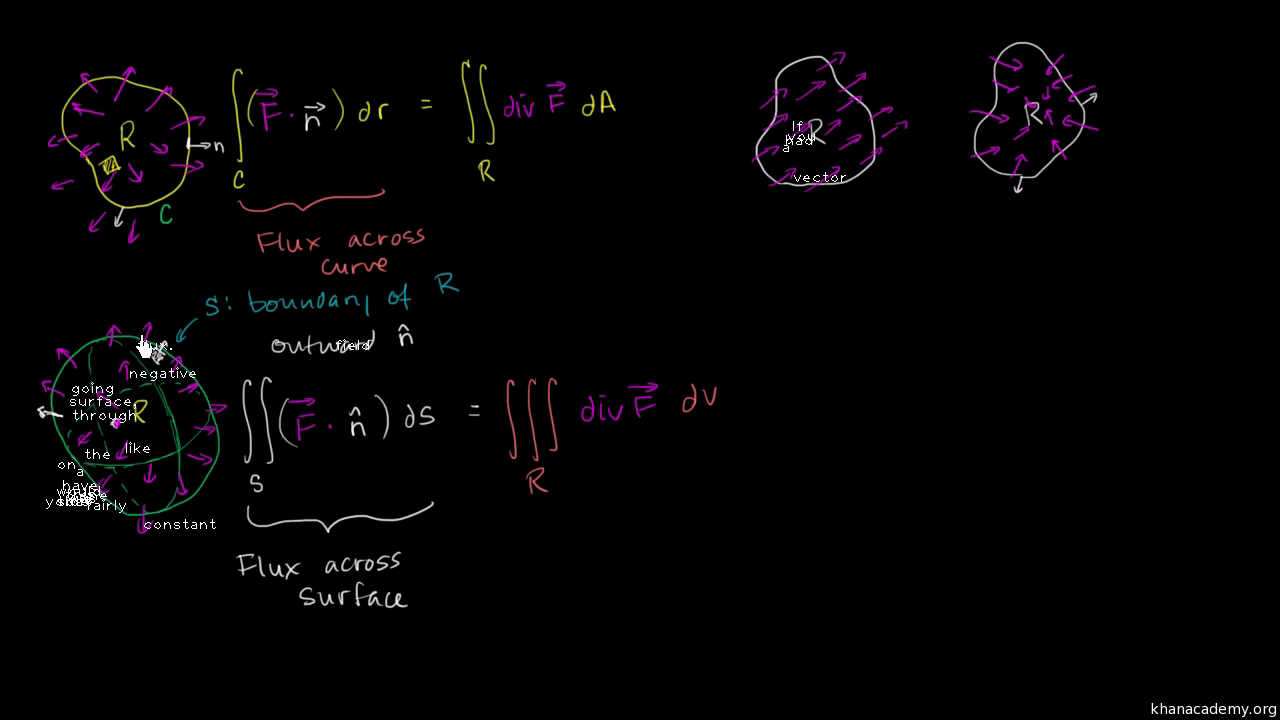 R
n
C
∫_C (F⃗ · n⃗) dr = ∬_R div F⃗ dA
Flux across
curve
R
If
you
had
a
vector
R
S: boundary of R
outward n̂
field
negative
going
surface,
through
R
the
like
on
a
have
fairly
constant
∬_S (F⃗ · n̂) dS = ∭_R div F⃗ dV
Flux across
surface
khanacademy.org